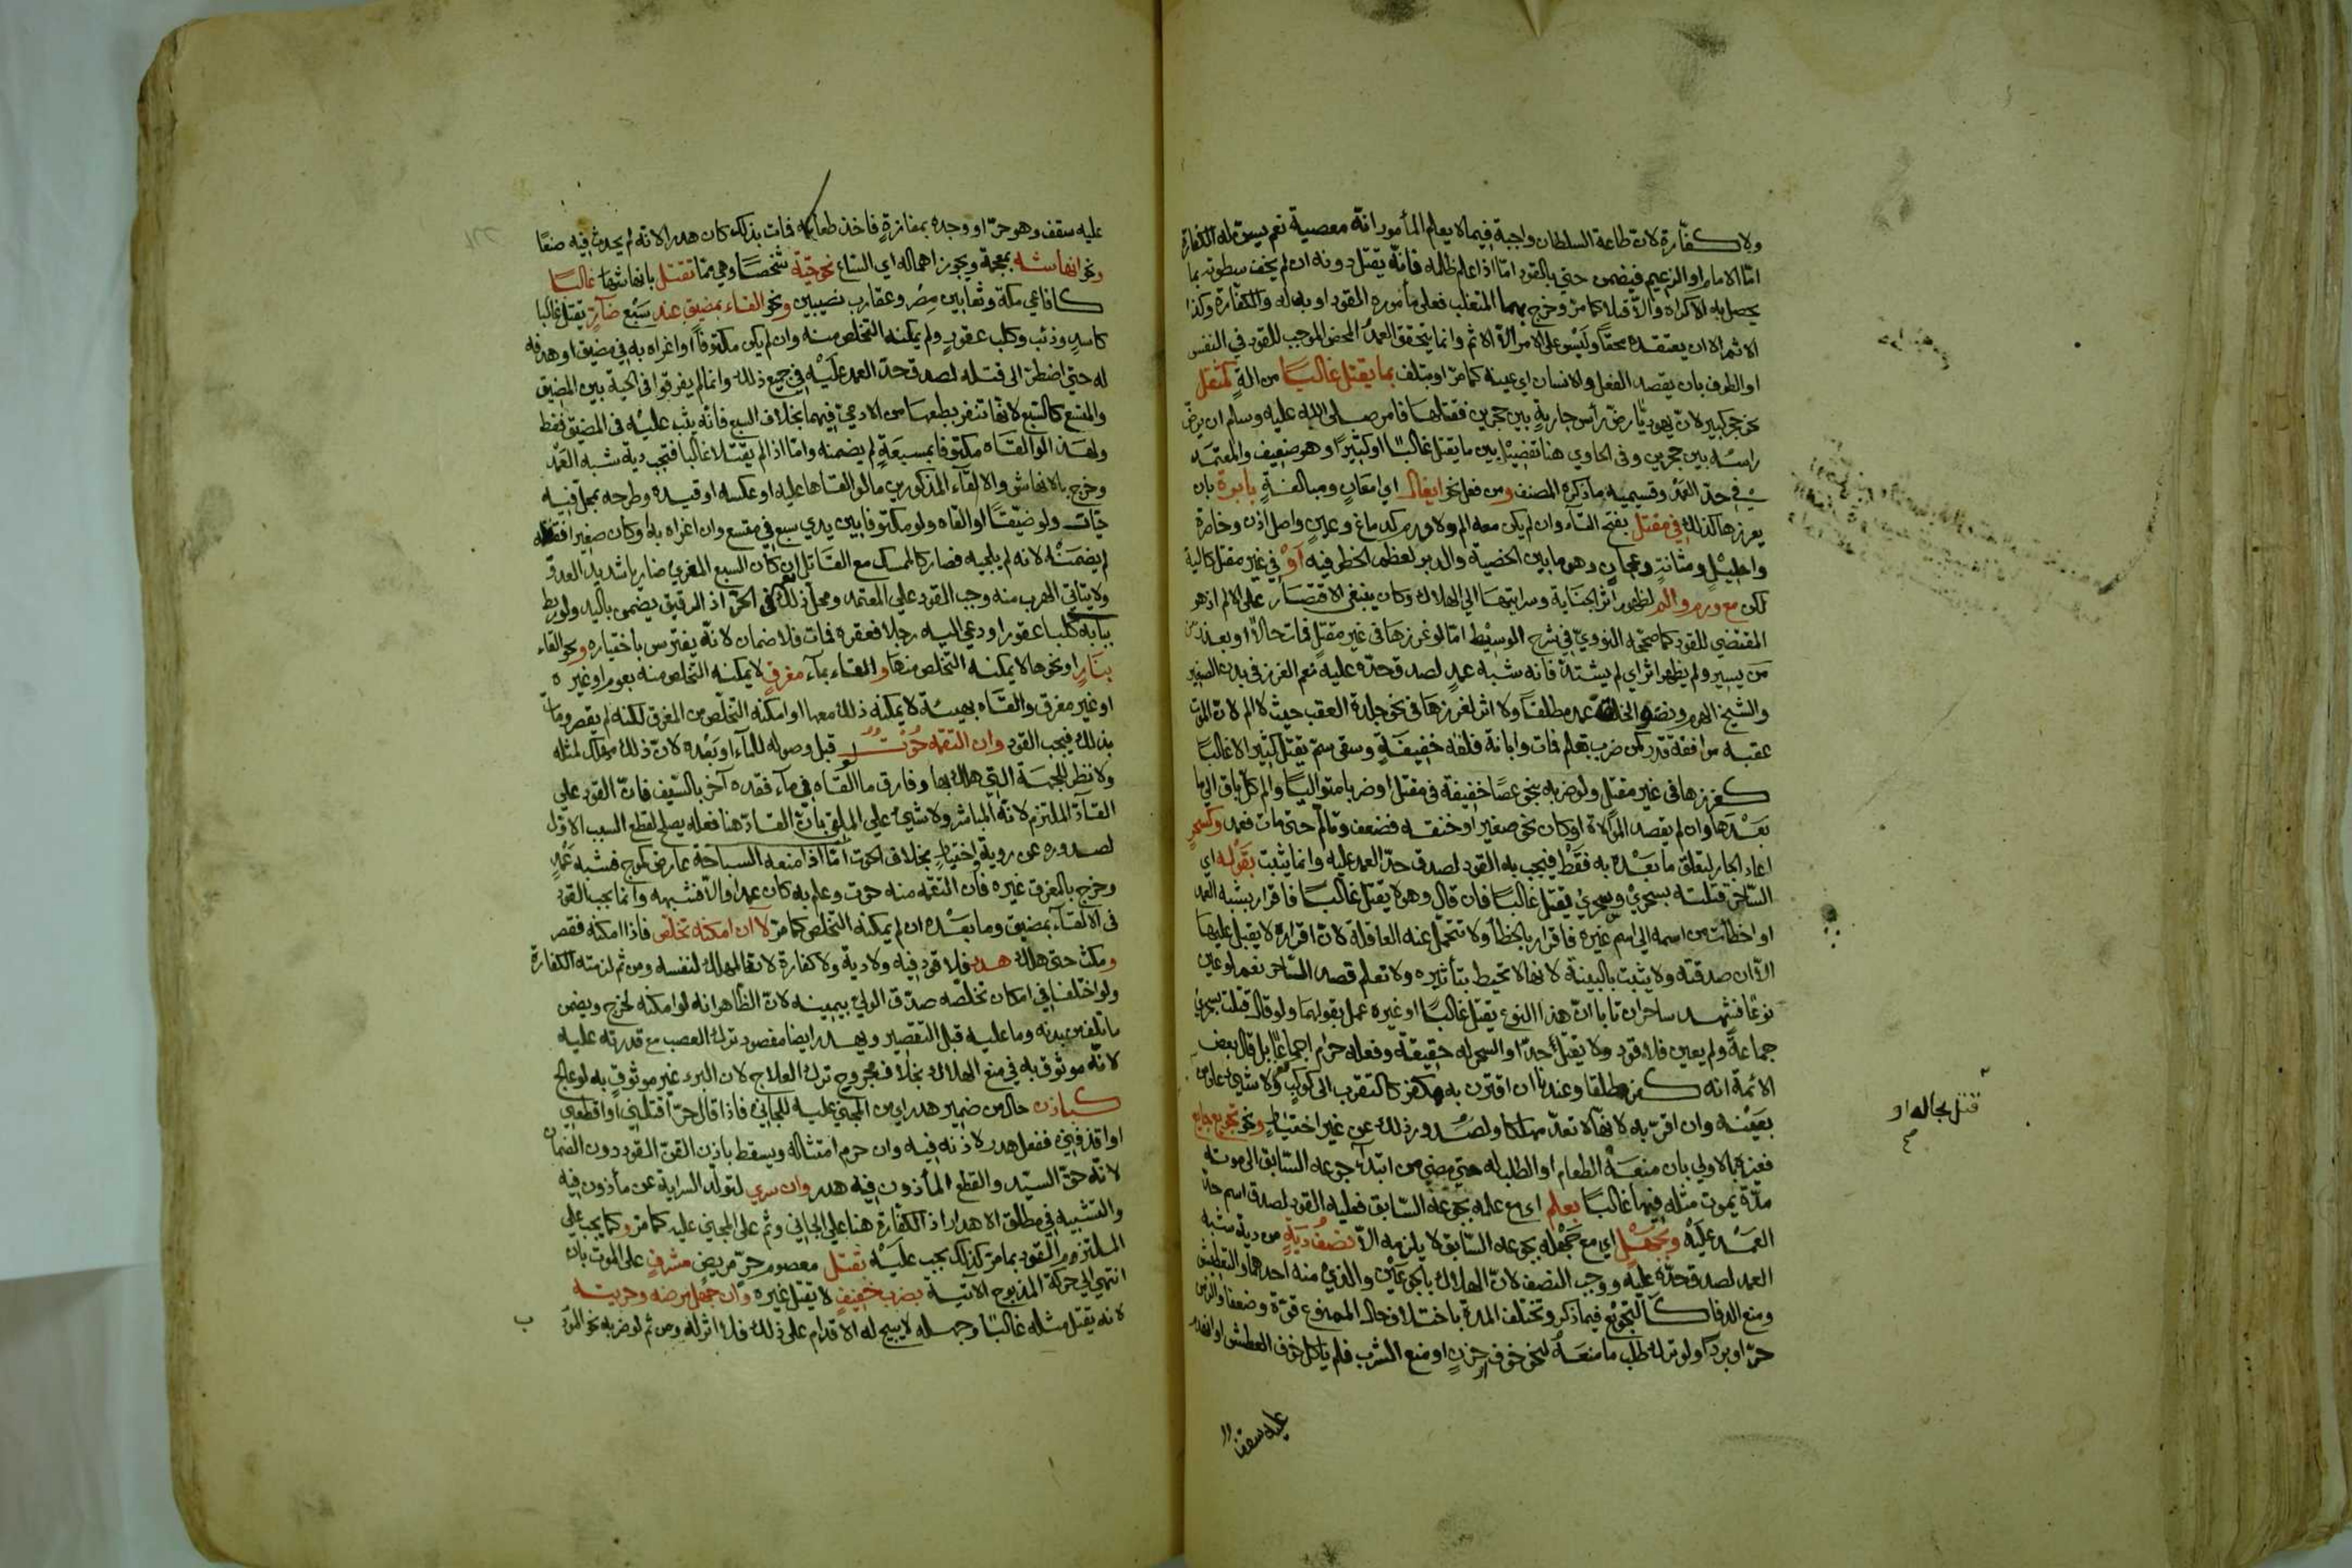 ولا كفارة لان طاعة السلطان واجبة فيما لا يعلم المأمور انه معصية نعم يسن له الكفارة
امّا الامام او الزعيم فيضمن حتي بالقود امّا اذا علم ظلمه فانه يقتل دونه ان لم يخف سطوته بما
يحصل به الاكراه والاّ قبلا كما مرّ وخرج بهما المتغلب فعلي مأموره القود او بدله والكفارة وكذا
الاثم الا ان يعتقده محقاً وليس علي الامر الاّ الاثم وانما يتحقق العمد المحض الموجب للقود في النفس
او الطرف بان يقصد الفعل والانسان اي عينه كما مرّ او بتلف بما يقتل غالبًا من الةٍ كمثقل
نحو حجر كبير لان يهوديّا رضّ رأس جارية بين حجرين فقتلها فامر صلى الله عليه وسلم ان يرض
راسه بين حجرين وفي الحاوي هنا تفصيل بين ما يقتل غالبًا او كثيرًا وهو ضعيف والمعتمد
في حدّ العمد وقسيميه ما ذكره المصنف ومن فعل نحو ايغال اي امعانٍ ومبالغةٍ بابرة بان
يغرزها كذلك في مقتل بفتح التاء وان لم يكن معه الم ولا ورم كدماغ وعينٍ واصل اذن وخاصرة
واحليلٍ ومثانةٍ وعجانٍ وهو ما بين الخصية والدبر لعظم الخطر فيه أو في غير مقتل كالية
لكن مع ورم والم لظهور اثر الجناية وسرايتها الي الهلاك وكان ينبغي الاقتصار علي الالم اذ هو
المقتضي للقود كما صححه النووي في شرح الوسيط امّا لو غرزها في غير مقتلٍ فمات حالاً او بعد زمن
من يسير ولم يظهر اثر اي لم يشتدّ فانه شبه عمدٍ لصدق حدّه عليه نعم الغرز في بدن الصغير
والشيخ الهرم ونضو الخلقة عمد مطلقًا ولا اثر لغرزها في نحو جلدة العقب حيث لا الم لان الموت
عقبه موافقة قدر كمن ضرب بقلم فمات وابانة فلقة خفيفةٍ وسقي سمّ يقتل كثيرا لا غالبًا
كغرزها في غير مقتل ولو ضربه بنحو عصًا خفيفة في مقتل او ضربا متواليًا والم كلّ باق الي ما
بعدها وان لم يقصد الموالاة او كان نحو صغير او خنقه فضعف وتألم حتي مات فعمد وكسحرٍ
اعاد الجار لتعلق ما بعده به فقط فيجب به القود لصدق حدّ العمد عليه وانما يثبت بقوله اي
الساحر قتلته بسحري وسحري يقتل غالبًا فان قال وهو لا يقتل غالبًا فاقرار بشبه العمد
او اخطأت من اسمه الي اسم غيره فاقرار بالخطأ ولا تتحمل عنه العاقلة لان اقراره لا يقبل عليها
الاّ ان صدقته ولا يثبت بالبينة لانها لا تحيط بتأثيره ولا تعلم قصد الساحر نعم لو عين
نوعًا فشهد ساحران تابا انّ هذا النوع يقتل غالبًا او غيره عمل بقولهما ولو قال قتلت بسحري
جماعةً ولم يعين فلا قود ولا يقتل أحدًا والسحر له حقيقة وفعله حرام اجماعًا بل قال بعض
الائمة انه كفر مطلقا وعندنا ان اقترن به مكفر كالتقرب الي كوكبٍ ولا شيء علي من
بعينه وان اقرّ به لانها لا تعدّ مهلكا ولصدور ذلك عن غير اختيارٍ ونحو تجويع جايع
فغيره بالاولي بان منعه الطعام او الطلب له حتي مضي من ابتداء جوعه السابق الي موته
مدّة يموت مثله فيها غالبًا بعلم اي مع علمه بجوعه السابق فعليه القود لصدق اسم حدّ
العمد عليه وبجهلٍ اي مع جهله بجوعه السّابق لا يلزمه الاّ نصف دية من دية شبه
العمد لصدق حدّه عليه ووجب النصف لانّ الهلاك بالجوعين والذي منه احدهما والتعطيش
ومنع الدفا كالتجويع فيما ذكر وتختلف المدة باختلاف حال الممنوع قوة وضعفا والزمن
حرّا وبردًا ولو ترك طلب ما منعه لنحو خوف حزنٍ او منع الشرب فلم يأكل خوف العطش او انهدم
عليه سقف
قتل بحاله او
صح
عليه سقف وهو حرّ او وجده بمفازةٍ فاخذ طعامه فمات بذلك كان هدرا لانه لم يحدث فيه صنعًا
ونحو انهاشه بمعجمة ويجوز اهماله اي السّاع نحو حيّة شخصًا وهي ممّا تقتل بانهاشها غالبًا
كافاعي مكة وثعابين مصر وعقارب نصيبين ونحو القاء بمضيق عند سبع ضارٍ يقتل غالبا
كاسدٍ وذئب وكلب عقور ولم يمكنه التخلص منه وان لم يكن مكتوفاً او اغراه به في مضيق او هدفه
له حتي اضطرّ الي قتله لصدق حدّ العمد عليه في جميع ذلك وانما لم يفرقوا في الحية بين المضيق
والمتسع كالسبع لانها تنفر بطبعها من الادمي فيهما بخلاف السبع فانه يثب عليه في المضيق فقط
ولهذا لو القاه مكتوفا بمسبعةٍ لم يضمنه وامّا اذا لم يقتلا غالبا فتجب دية شبه العمد
وخرج بالانهاش والالقاء المذكورين ما لو القاها عليه او عكسه او قيده وطرحه بمحل فيه
حيّات ولو ضيّقًا او القاه ولو مكتوفا بين يدي سبع في متسع وان اغراه به او كان صغيرا فقتله
لم يضمنه لانه لم يلجيه فصار كالممسك مع القاتل نعم ان كان السبع المغري ضاريا شديد العدو
ولا يتاتي الهرب منه وجب القود علي المعتمد ومحل ذلك في الحرّ اذ الرقيق يضمن باليد ولو ربط
ببابه كلبا عقورا ودعي اليه رجلا فعقره فمات فلا ضمان لانه يفترس باختياره ونحو القاء
بنارٍ او نحوها لا يمكنه التخلص منها والقاء بماء مغرقٍ لا يمكنه التخلص منه بعوم او غيره
او غير مغرق والقاه بهيئة لا يمكنه ذلك معها او امكنه التخلص من المغرق لكنه لم يقصر ومات
بذلك فيجب القود وان التقمه حوتٌ ولو قبل وصوله للماء او بعده لان ذلك مهلك لمثله
ولا نظر للجهة التي هلك بها وفارق ما القاه في ماء فقده آخر بالسّيف فانّ القود علي
القادّ الملتزم لانه المباشر ولا شيء علي الملقي بانّ القادّ هنا فعله يصلح لقطع السبب الاول
لصدوره عن روية واختيارٍ بخلاف الحوت امّا اذا منعه السباحة عارض كموج فشبه عمدٍ
وخرج بالمغرق غيره فان التقمه منه حوت وعلم به كان عمدا والاّ فشبهه وانما يجب القود
في الالقاء بمضيق وما بعده ان لم يمكنه التخلص كما مرّ لا ان امكنه تخلّص فاذا امكنه فقصر
ومكث حتي هلك هدر فلا قود فيه ولا دية ولا كفارة لانه المهلك لنفسه ومن ثم لزمته الكفارة
ولو اختلفا في امكان تخلصه صدّق الولي بيمينه لان الظاهر انه لو امكنه لخرج ويضمن
ما تلف من بدنه وما عليه قبل التقصير ويهدر ايضا مفصود ترك العصب مع قدرته عليه
لانه موثوق به في منع الهلاك بخلاف مجروح ترك العلاج لان البرء غير موثوق به لو عالج
كباذن حال من ضمير هدر اي من المجني عليه للجاني فاذا قال حرّ اقتلني او اقطعني
او اقذفني ففعل هدر لاذنه فيه وان حرم امتثاله ويسقط باذن القن القود دون الضمان
لانه حق السيّد والقطع المأذون فيه هدر وان سري لتولد السراية عن مأذون فيه
والتشبيه في مطلق الاهدار اذ الكفارة هنا علي الجاني وثم علي المجني عليه كما مرّ وكما يجب علي
الملتزم القود بما مرّ كذلك يجب عليه بقتل معصوم حرّ مريض مشرفٍ علي الموت بان
انتهي الي حركة المذبوح الاتية بضرب خفيفٍ لا يقتل غيره وان جهل مرضه وحريته
لانه يقتل مثله غالبًا وجهله لا يبيح له الاقدام علي ذلك فلا اثر له ومن ثم لو ضربه نحو المؤدّ
ب